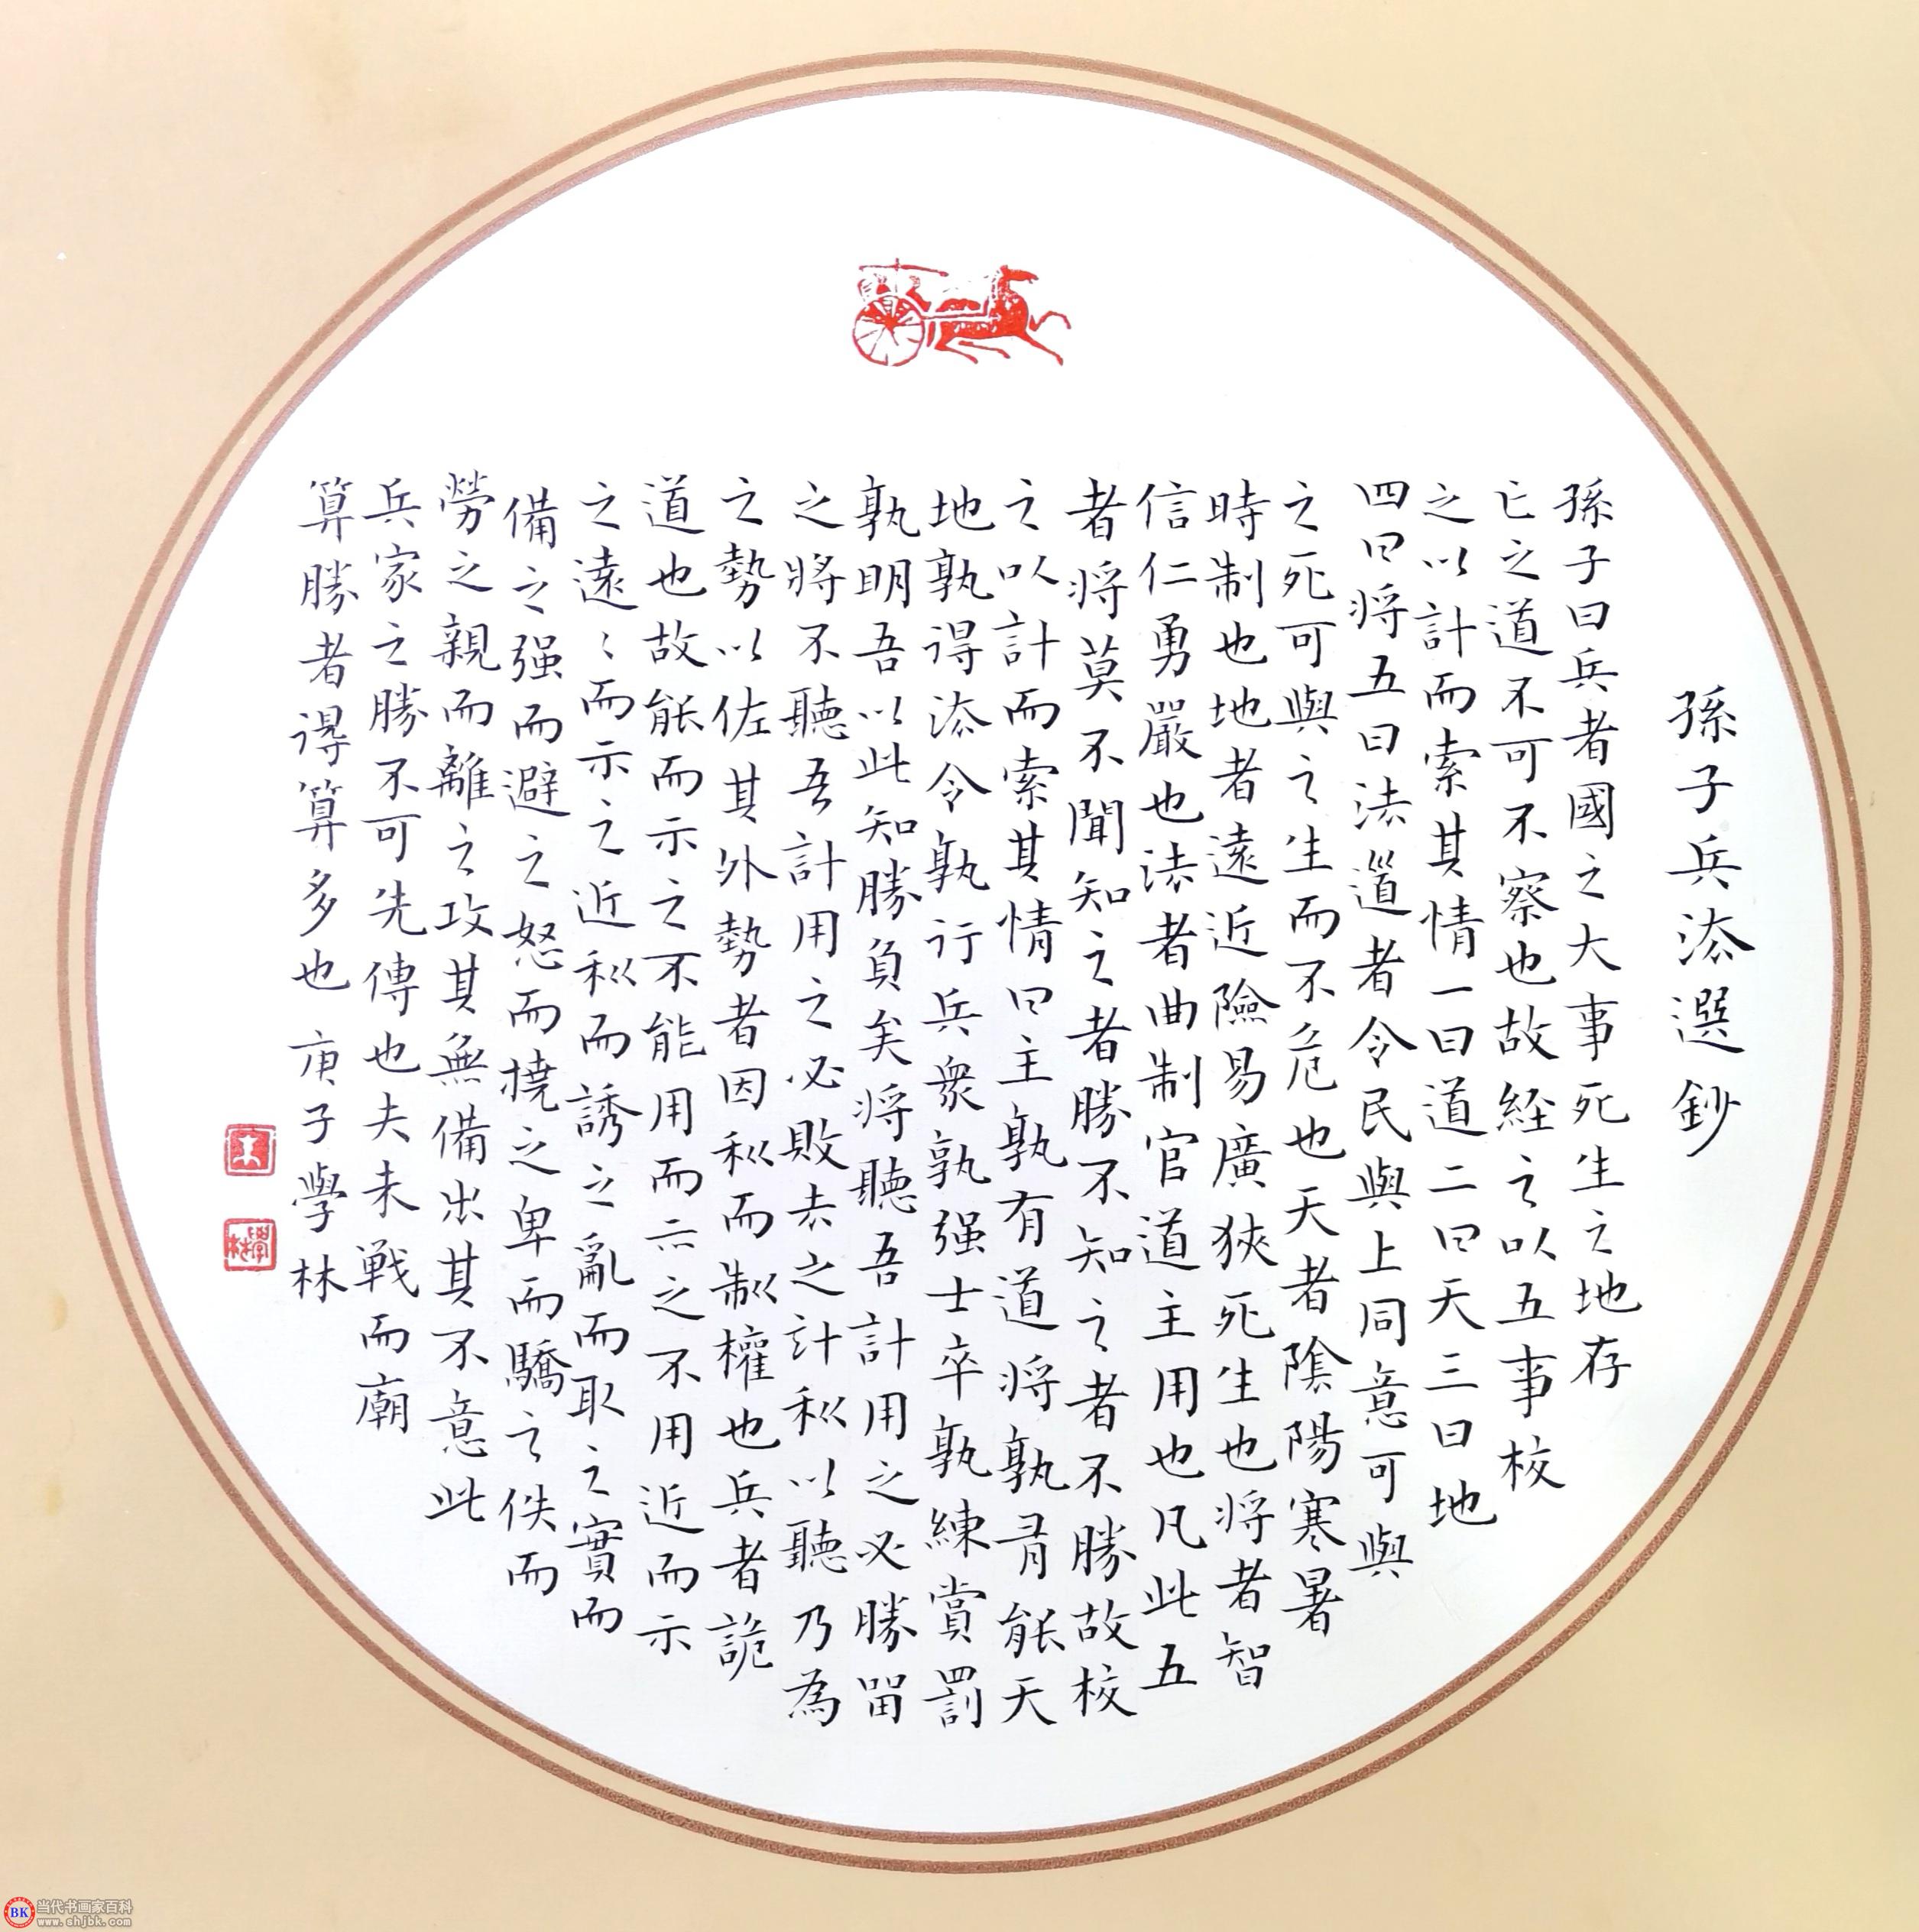 孫子兵法選鈔
孫子曰兵者國之大事死生之地存
亡之道不可不察也故経之以五事校
之以計而索其情一曰道二曰天三曰地
四曰将五曰法道者令民與上同意可與
之死可與之生而不危也天者陰陽寒暑
時制也地者遠近險易廣狹死生也将者智
信仁勇嚴也法者曲制官道主用也凡此五
者将莫不聞知之者勝不知之者不勝故校
之以計而索其情曰主孰有道将孰有能天
地孰得法令孰行兵衆孰强士卒孰練賞罰
孰明吾以此知勝負矣将聽吾計用之必勝留
之将不聽吾計用之必敗去之計利以聽乃為
之勢以佐其外勢者因利而制權也兵者詭
道也故能而示之不能用而示之不用近而示
之遠〻而示之近利而誘之亂而取之實而
備之强而避之怒而撓之卑而驕之佚而
勞之親而離之攻其無備出其不意此
兵家之勝不可先傳也夫未戦而廟
算勝者得算多也 庚子學林
王
學林
BK 当代书画家百科
www.shjbk.com